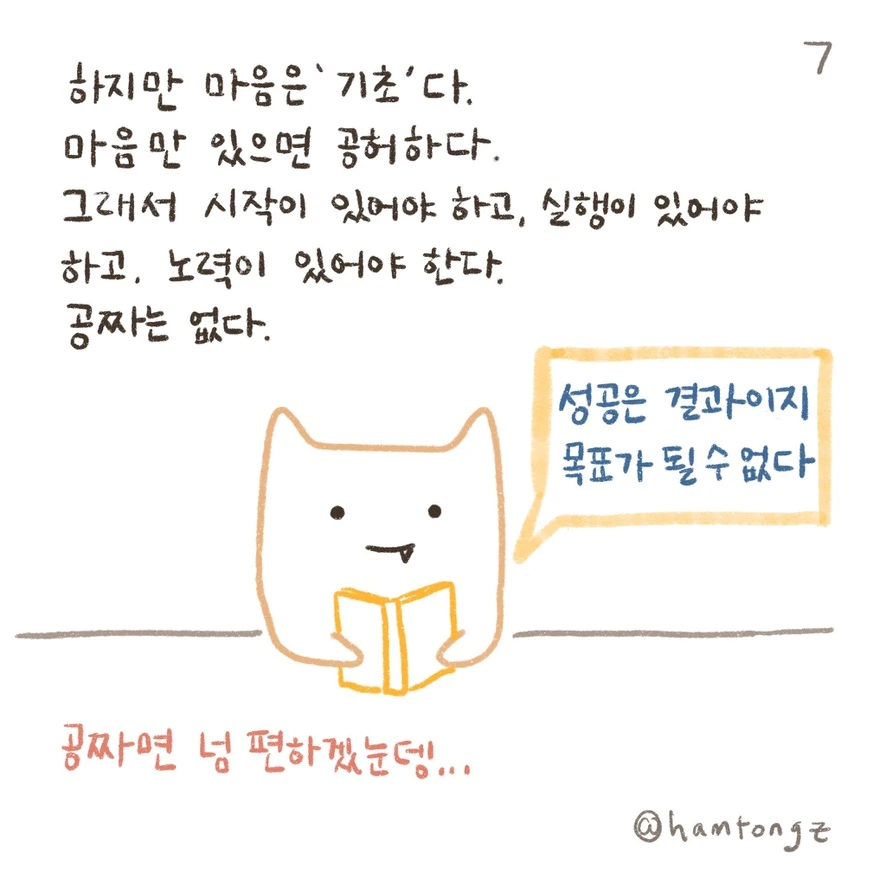 7
하지만 마음은 '기초'다.
마음만 있으면 공허하다.
그래서 시작이 있어야 하고, 실행이 있어야
하고, 노력이 있어야 한다.
공짜는 없다.
성공은 결과이지
목표가 될 수 없다
공짜면 넘 편하겠눈뎅...
@hamtongz